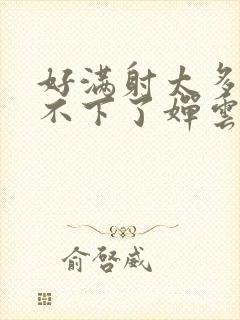 好满射太多
不下了婵雲
俞啓威